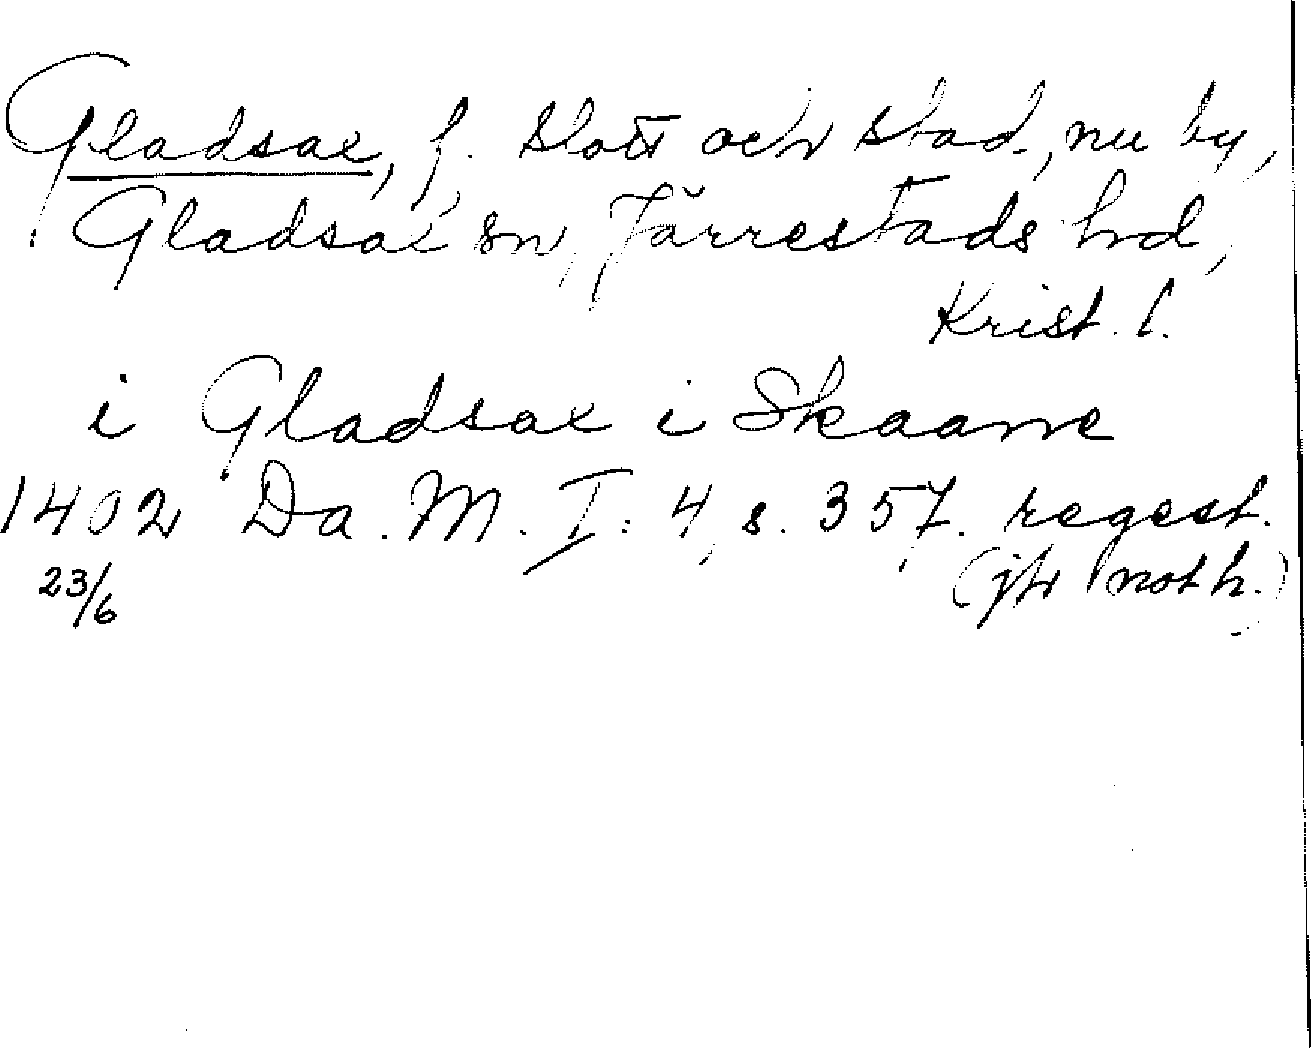 Gladsax, f. slott och stad, nu by,
Gladsax sn, Järrestads hd,
Krist. l.
i Gladsax i Skaane
1402 Da. M. I: 4, s. 357. regest.
23/6 (jfr not h.)